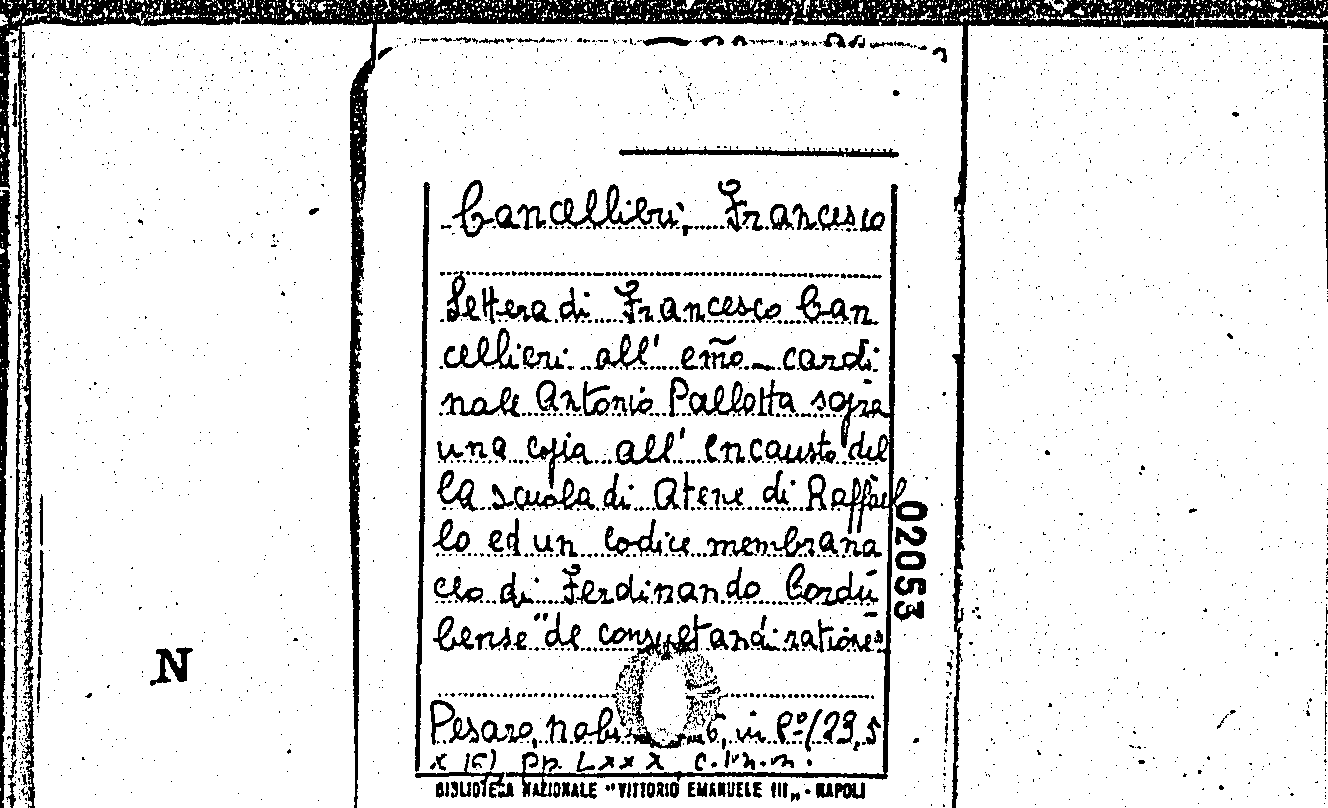 Cancellieri, Francesco
Lettera di Francesco Can
cellieri all' em̃o cardi
nale Antonio Pallotta sopra
una copia all' encausto del
la scuola di Atene di Raffael
lo ed un codice membrana
ceo di Ferdinando Cordu
bense "de consultandi ratione"
Pesaro, 6, in 8º (23,5
x 15) pp. LXXX c.
BIBLIOTECA NAZIONALE "VITTORIO EMANUELE III„ - NAPOLI
02053
N